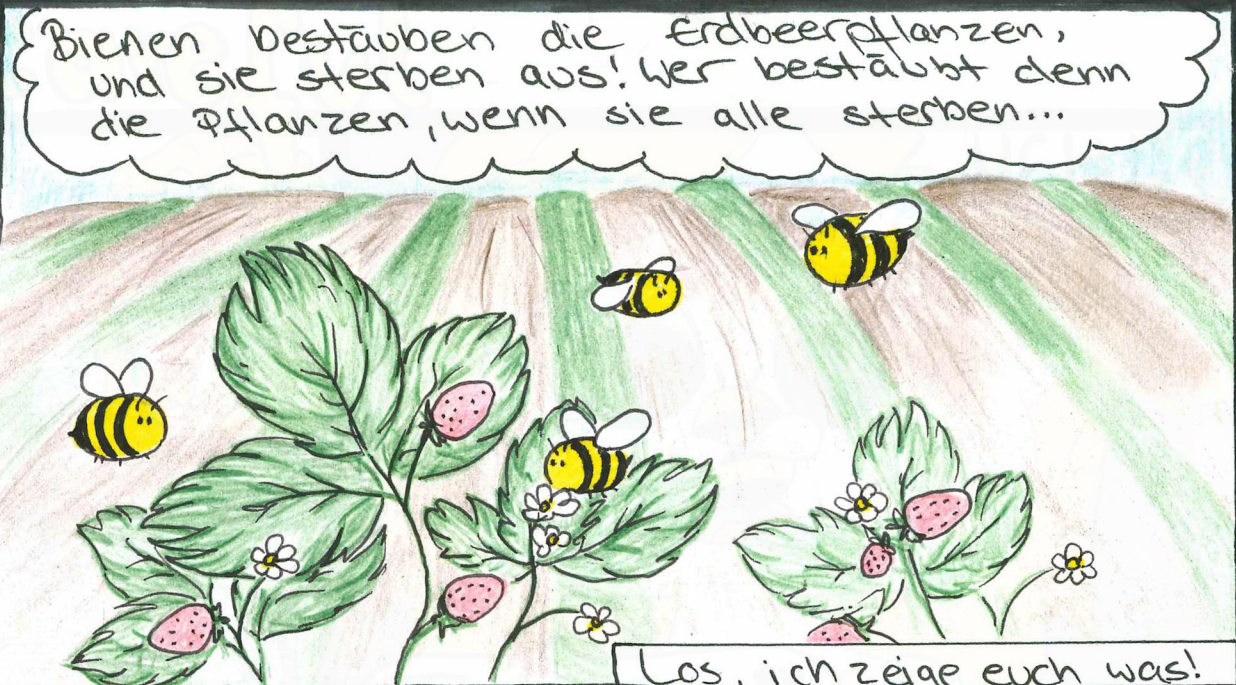 Bienen bestäuben die Erdbeerpflanzen,
und sie sterben aus! Wer bestäubt denn
die Pflanzen, wenn sie alle sterben...
Los, ich zeige euch was!